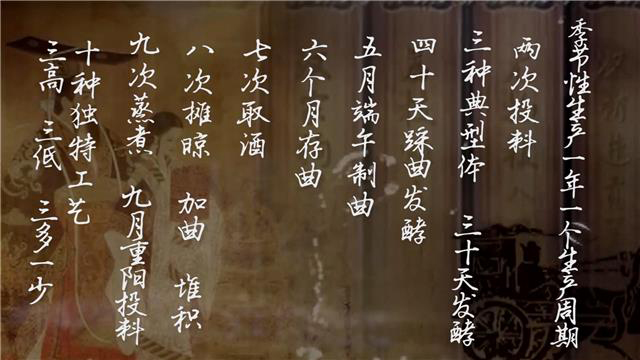 季节性生产一年一个生产周期
两次投料
三种典型体 三十天发酵
四十天踩曲发酵
五月端午制曲
六个月存曲
七次取酒
八次摊晾 加曲 堆积
九次蒸煮 九月重阳投料
十种独特工艺
三高 三低 三多一少